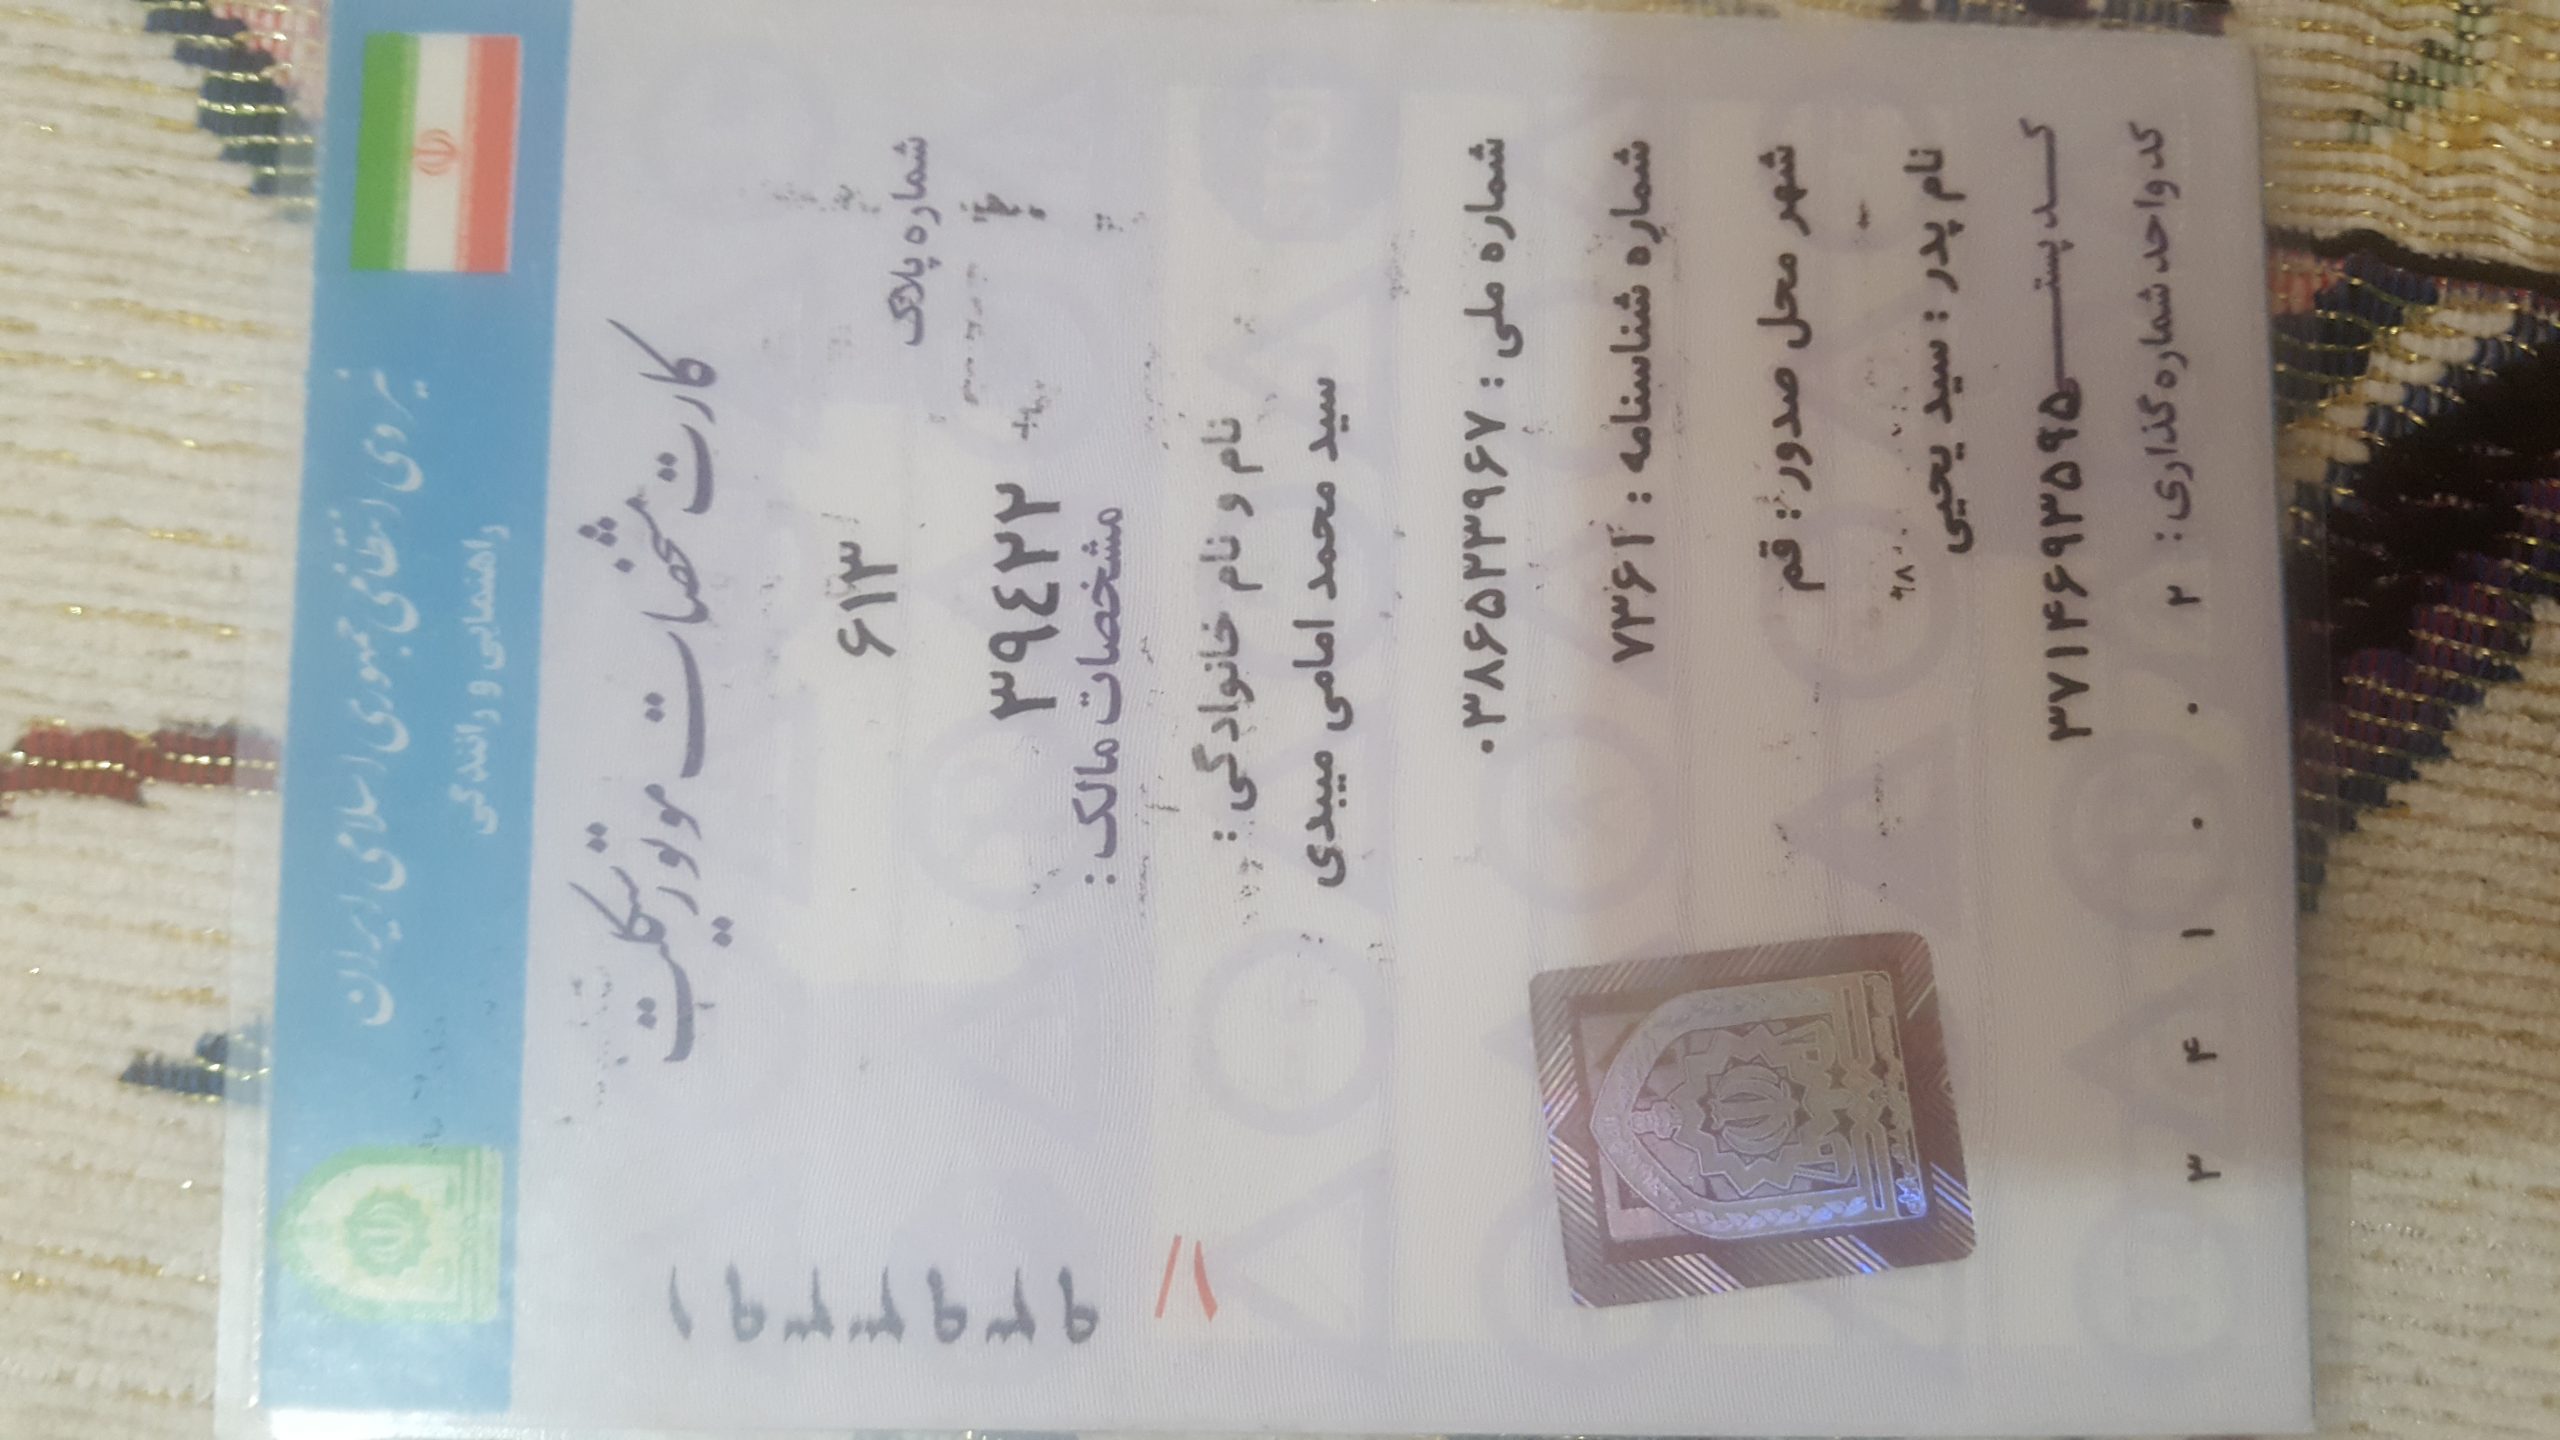 نیروی انتظامی جمهوری اسلامی ایران
راهنمایی و رانندگی
کارت مشخصات موتور سیکلت
شماره پلاک
۶۱۳
۳۹۴۲۲
مشخصات مالک :
نام و نام خانوادگی :
سید محمد امامی میبدی
شماره ملی : ۰۳۸۶۵۲۳۹۶۷
شماره شناسنامه : ۷۳۶۱
شهر محل صدور : قم
نام پدر : سید یحیی
کد پستی ۳۷۱۴۶۹۳۵۹۵
کد واحد شماره گذاری : ۲ ۰ ۰ ۱ ۴ ۳